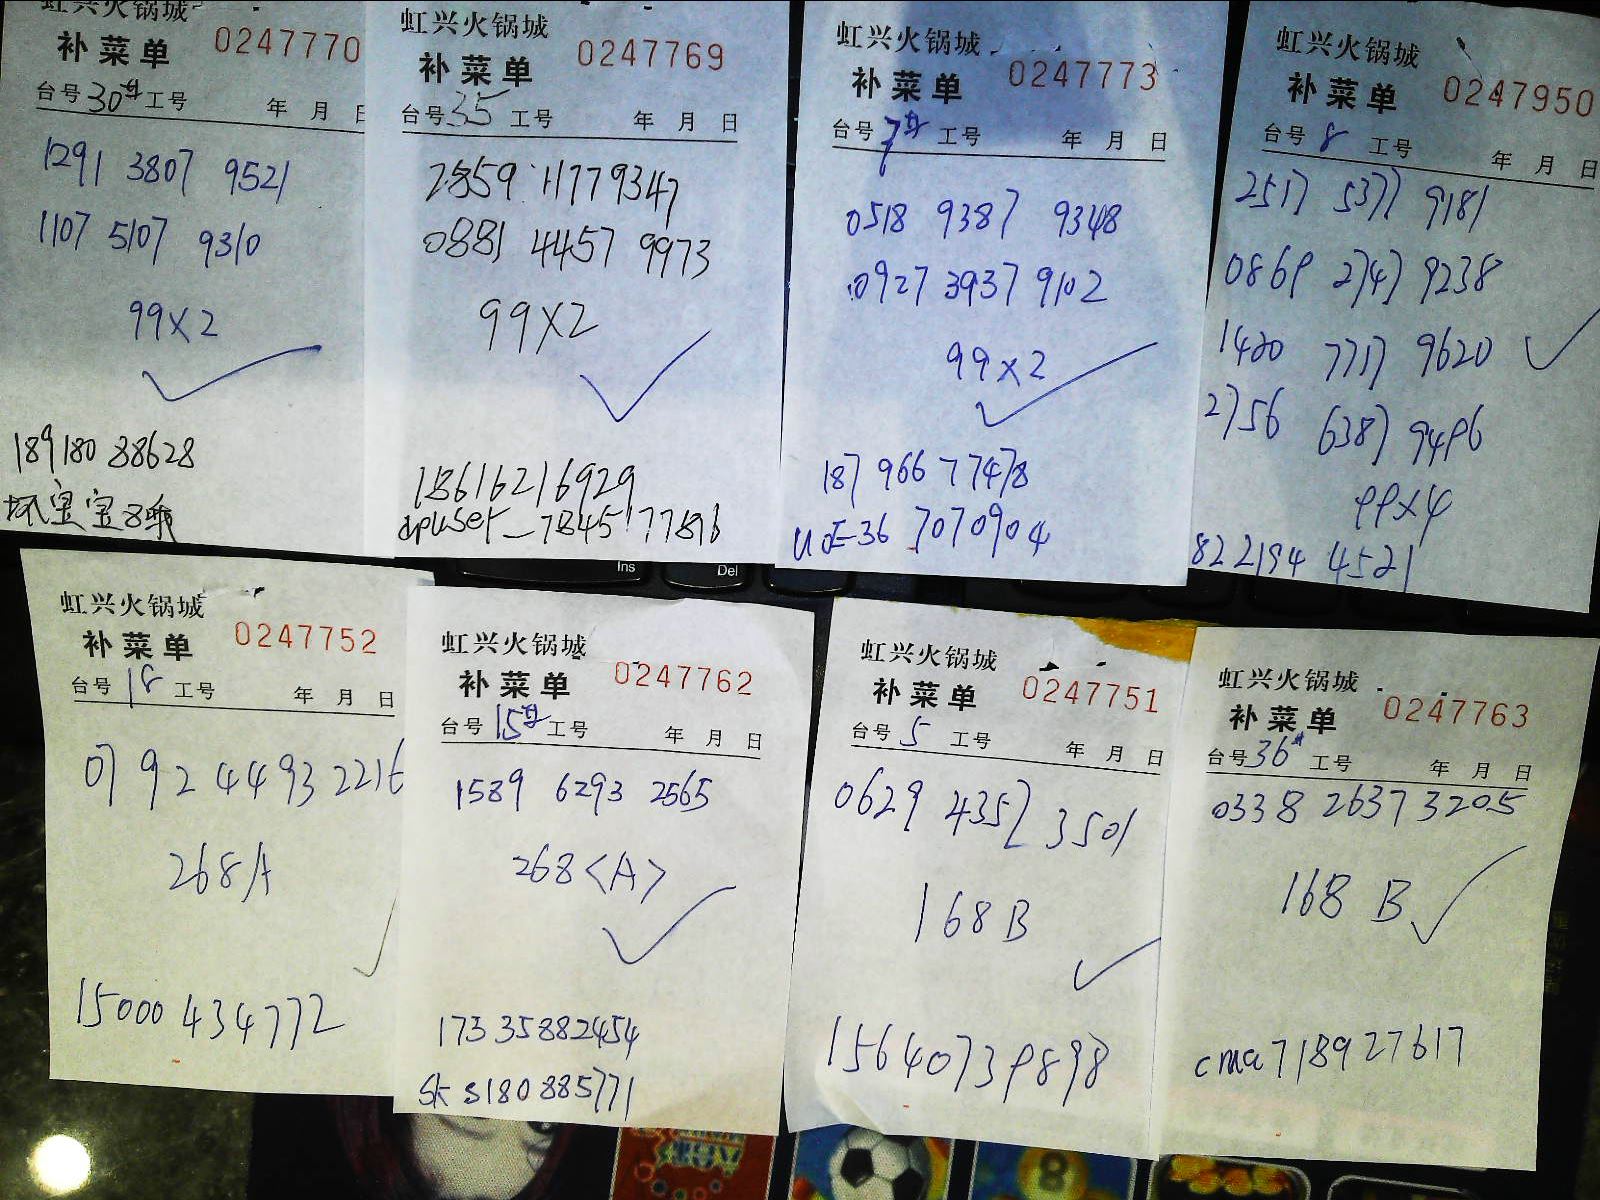 虹兴火锅城
补菜单 0247770
台号 30# 工号 年 月 日
1291 3807 9521
1107 5107 9310
99×2
18918088628
坏宝宝8哦
虹兴火锅城
补菜单 0247769
台号 35 工号 年 月 日
2859 1177 9347
0881 4457 9973
99×2
18616216929
dpuser_7845177876
虹兴火锅城
补菜单 0247773
台号 7# 工号 年 月 日
0518 9387 9348
0927 3937 9102
99×2
187 966 77478
UOE-36 7070904
虹兴火锅城
补菜单 0247950
台号 8 工号 年 月 日
2517 5377 9181
0869 2747 9238
1420 7717 9620
2756 6387 9496
99×4
822194 4521
Ins
Del
虹兴火锅城
补菜单 0247752
台号 18 工号 年 月 日
0792 4493 2216
268A
15000434772
虹兴火锅城
补菜单 0247762
台号 15# 工号 年 月 日
1589 6293 2565
268<A>
173 35882454
sk s180885771
虹兴火锅城
补菜单 0247751
台号 5 工号 年 月 日
0629 4352 3501
168B
15640739898
虹兴火锅城
补菜单 0247763
台号 36# 工号 年 月 日
0338 2637 3205
168 B
cma718927617
8